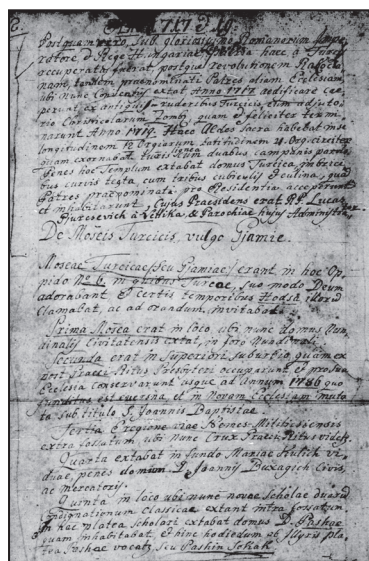 Anno 1717 & 19.
Postquam vero, sub gloriosissimo Romanorum Impe-
ratore & Rege Hungariae haec à Turcis
occupata fuerat postque revolutionem
nam, tandem praenominati Patres aliam Ecclesiam
ubi nunc extat Anno 1717 aedificare cae-
perunt ex antiquis ruderibus Turcicis, cum adjuto-
rio Christicolarum Tombi, quam & feliciter termi-
narunt Anno 1719. Haec Aedes Sacra habebat in se
longitudinem 12 Orgiarum latitudinem 4 Org: circiter
quam exornabat Turris cum duabus campanis parvis.
Penes hoc Templum extabat domus Turcica imbrici-
bus curvis tecta, cum tribus cubiculis & culina, quam
Patres praenominati pro Residentia acceperunt
et inhabitarunt. Cujus Praesidens erat P. Lucas
à & Parochiae hujus Administrator.
De Moseis Turcicis, vulgo Gjamie.
Moseae Turcicae (seu Gjamiae) erant in hoc Op-
pido No 6. in quibus Turcae, suo modo Deum
adorabant & certis temporibus Hodsa, illorum
clamabat, ac ad orandum, invitabat.
Prima Mosea erat in loco ubi nunc domus Nun-
dinalis Civitatensis extat, in foro Nundinali
Secunda erat in Superiori suburbio, quam ex
post Graeci Ritus occuparunt & pro sua
Ecclesia conservarunt usque ad Annum 1786 quo
funditus est eversa et in Novam Ecclesiam muta-
ta sub titulo S. Joannis Baptistae.
Tertia E regione viae Nemes-Milithiciensis
extra fossatum ubi nunc Crux Graeci Ritus videt.
Quarta extabat in fundo Mariae Kulich vi-
duae, penes domum D. Joannis Buxagich Civis,
ac mercatoris.
Quinta in loco ubi nunc novae Scholae duarum
classicae extant intra fossatum
In hac platea Scholari extabat domus D. Pashae
quam inhabitabat, & hinc hodiedum ab Illyris pla-
tea Pashae vocatr seu Pashin Sokak